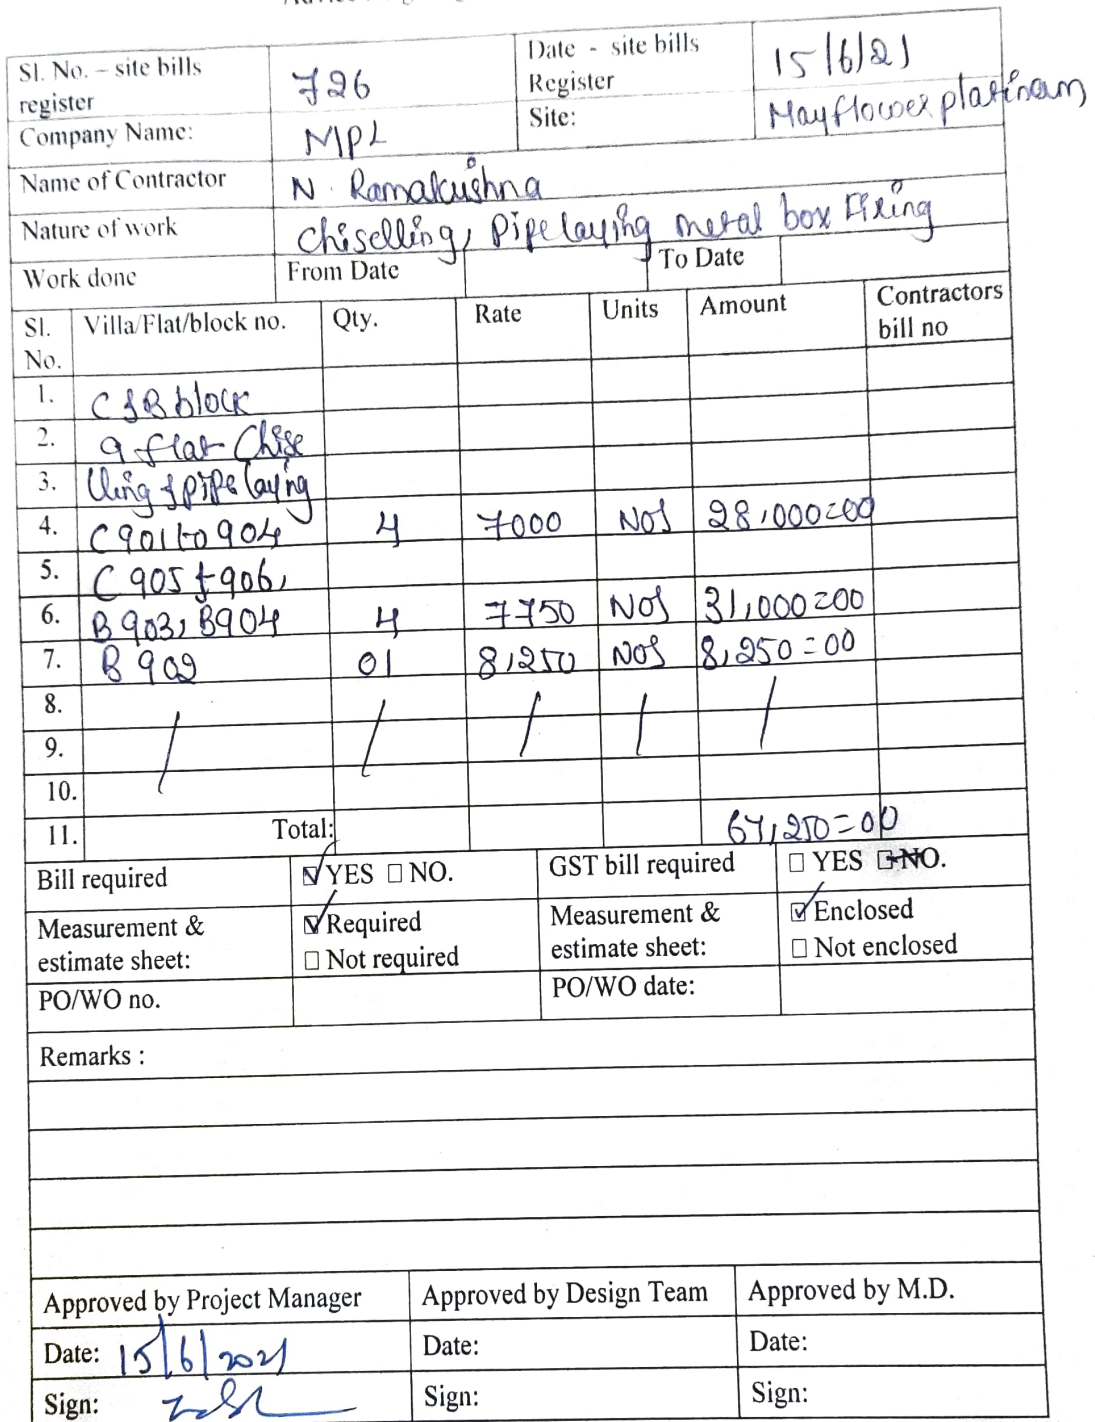 Sl. No. – site bills register 726 Date - site bills Register 15/6/21
Company Name: MPL Site: Mayflower platinam
Name of Contractor N. Ramakrishna
Nature of work Chiselling, Pipe laying metal box Fixing
Work done From Date To Date
Sl. No. Villa/Flat/block no. Qty. Rate Units Amount Contractors bill no
1. C & B block
2. 9 flat Chise
3. lling & pipe laying
4. C 901 to 904 4 7000 NOS 28,000=00
5. C 905 & 906,
6. B 903, B904 4 7750 NOS 31,000=00
7. B 902 01 8,250 NOS 8,250=00
8.
9.
10.
11. Total: 67,250=00
Bill required ☑ YES ☐ NO. GST bill required ☐ YES ☐ NO.
Measurement & estimate sheet: ☑ Required ☐ Not required Measurement & estimate sheet: ☑ Enclosed ☐ Not enclosed
PO/WO no. PO/WO date:
Remarks :
Approved by Project Manager Approved by Design Team Approved by M.D.
Date: 15/6/2021 Date: Date:
Sign: Sign: Sign: